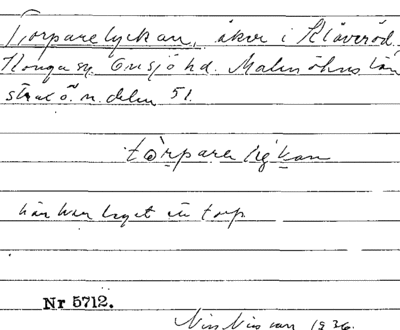 Torparelyckan, åker i Klåveröd,
Konga sn. Onsjö hd. Malmöhus län
strax ö. n. delen 51.
tòrparelykan
här har legat ett torp
Nr 5712.
1936.